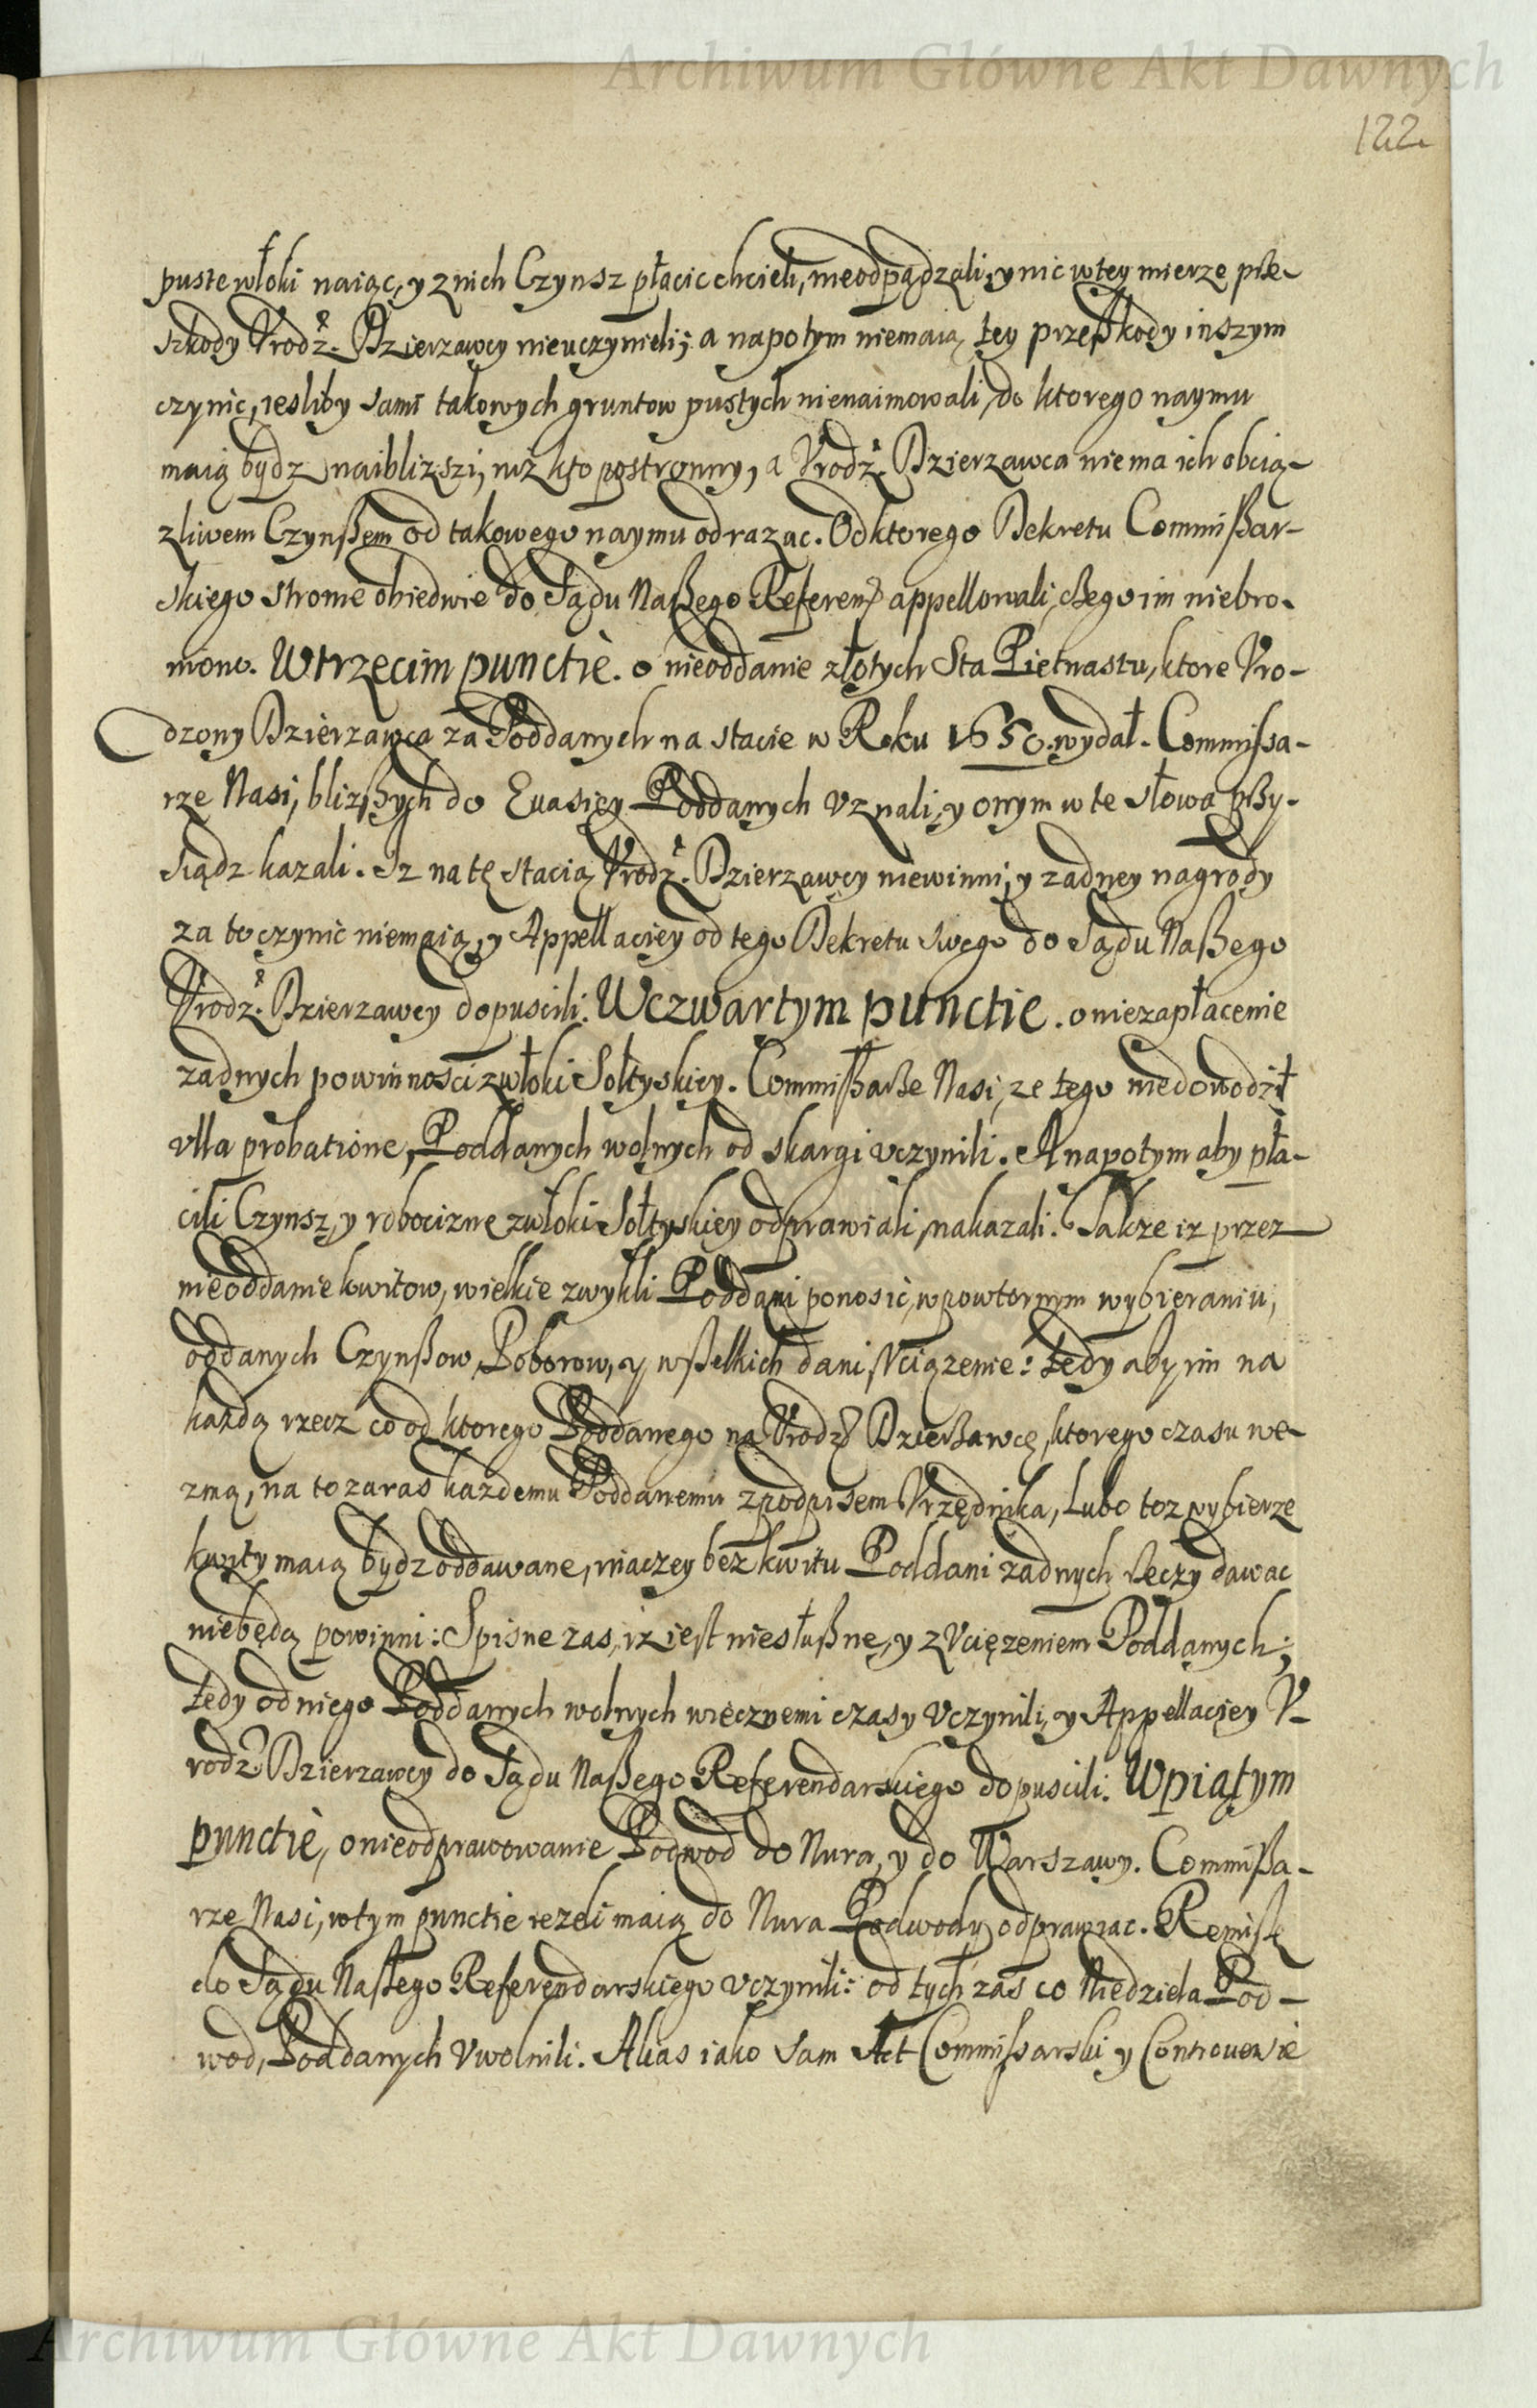 Archiwum Główne Akt Dawnych
122
puste włoki naiąc, y znich Czynsz płacic chcieli, nieodpądzali, y nic wtey mierze prze-
szkody Vrodz. Dzierzawcy nieuczynieli; a napotym niemaią tey przeßkody inszym
czynic, iesliby sami takowych gruntow pustych nienaimowali, do ktorego naymu
maią bydz naiblizszi, niz kto postronny, a Vrodz. Dzierzawca niema ich obcią-
zliwem Czynßem od takowego naymu odrazac. Od ktorego Dekretu Commißar-
skiego strome obiedwie do Sądu Naßego Referen. appellowali, czego im niebro-
niono. Wtrzecim punctie. o nieoddanie złotych Sta Piętnastu, ktore Vro-
dzony Dzierzawca za Poddanych na stacie w Roku 1650. wydał. Commissa-
rze Nasi, blizßych do Euasiey Poddanych vznali, y onym w te słowa przy-
siądz kazali. Iz na tę stacią Vrodz. Dzierzawcy niewinni, y zadney nagrody
za to czynic niemaią, y Appellaciey od tego Dekretu swego do Sądu Naßego
Vrodz. Dzierzawcy dopuscili. Wczwartym punctie. o niezapłacenie
zadnych powinnosci zwłoki Sołtyskiey. Commißarze Nasi, ze tego niedowodził
vlla probatione, Poddanych wolnych od skargi vczynili. A napotym aby pła-
cili Czynsz, y robociznę zwłoki Sołtyskiey odprawiali, nakazali. Takze iz przez
nieoddanie kwitow, wielkie zwykli Poddani ponosic, w powtornym wybieraniu,
oddanych Czynßow, Poborow, y wßelkich dani Vciązenie: tedy aby im na
kazdą rzecz co od ktorego Poddanego na Vrodz. Dzierzawcę, ktorego czasu we-
zmą, na to zaras kazdemu Poddanemu zpodpisem Vrzędnika, Lubo toz wybierze
kwity maią bydz oddawane, inaczey bez kwitu Poddani zadnych rzeczy dawac
niebędą powinni: Spisne zas, iz iest niesłußne, y z Vcięzeniem Poddanych;
tedy od niego Poddanych wolnych wiecznemi czasy Vczynili, y Appellaciey V-
rodz. Dzierzawcy do Sądu Naßego Referendarskiego dopuscili. Wpiątym
punctie, o nieodprawowanie Podwod do Nura, y do Warszawy. Commißa-
rze Nasi, w tym punctie iezeli maią do Nura Podwody odprawiac. Remissę
do Sądu Naßego Referendarskiego vczynili: od tych zas co Niedziela Pod-
wod, Poddanych Vwolnili. Alias iako sam Act Commissarski y Controuersie
Archiwum Główne Akt Dawnych